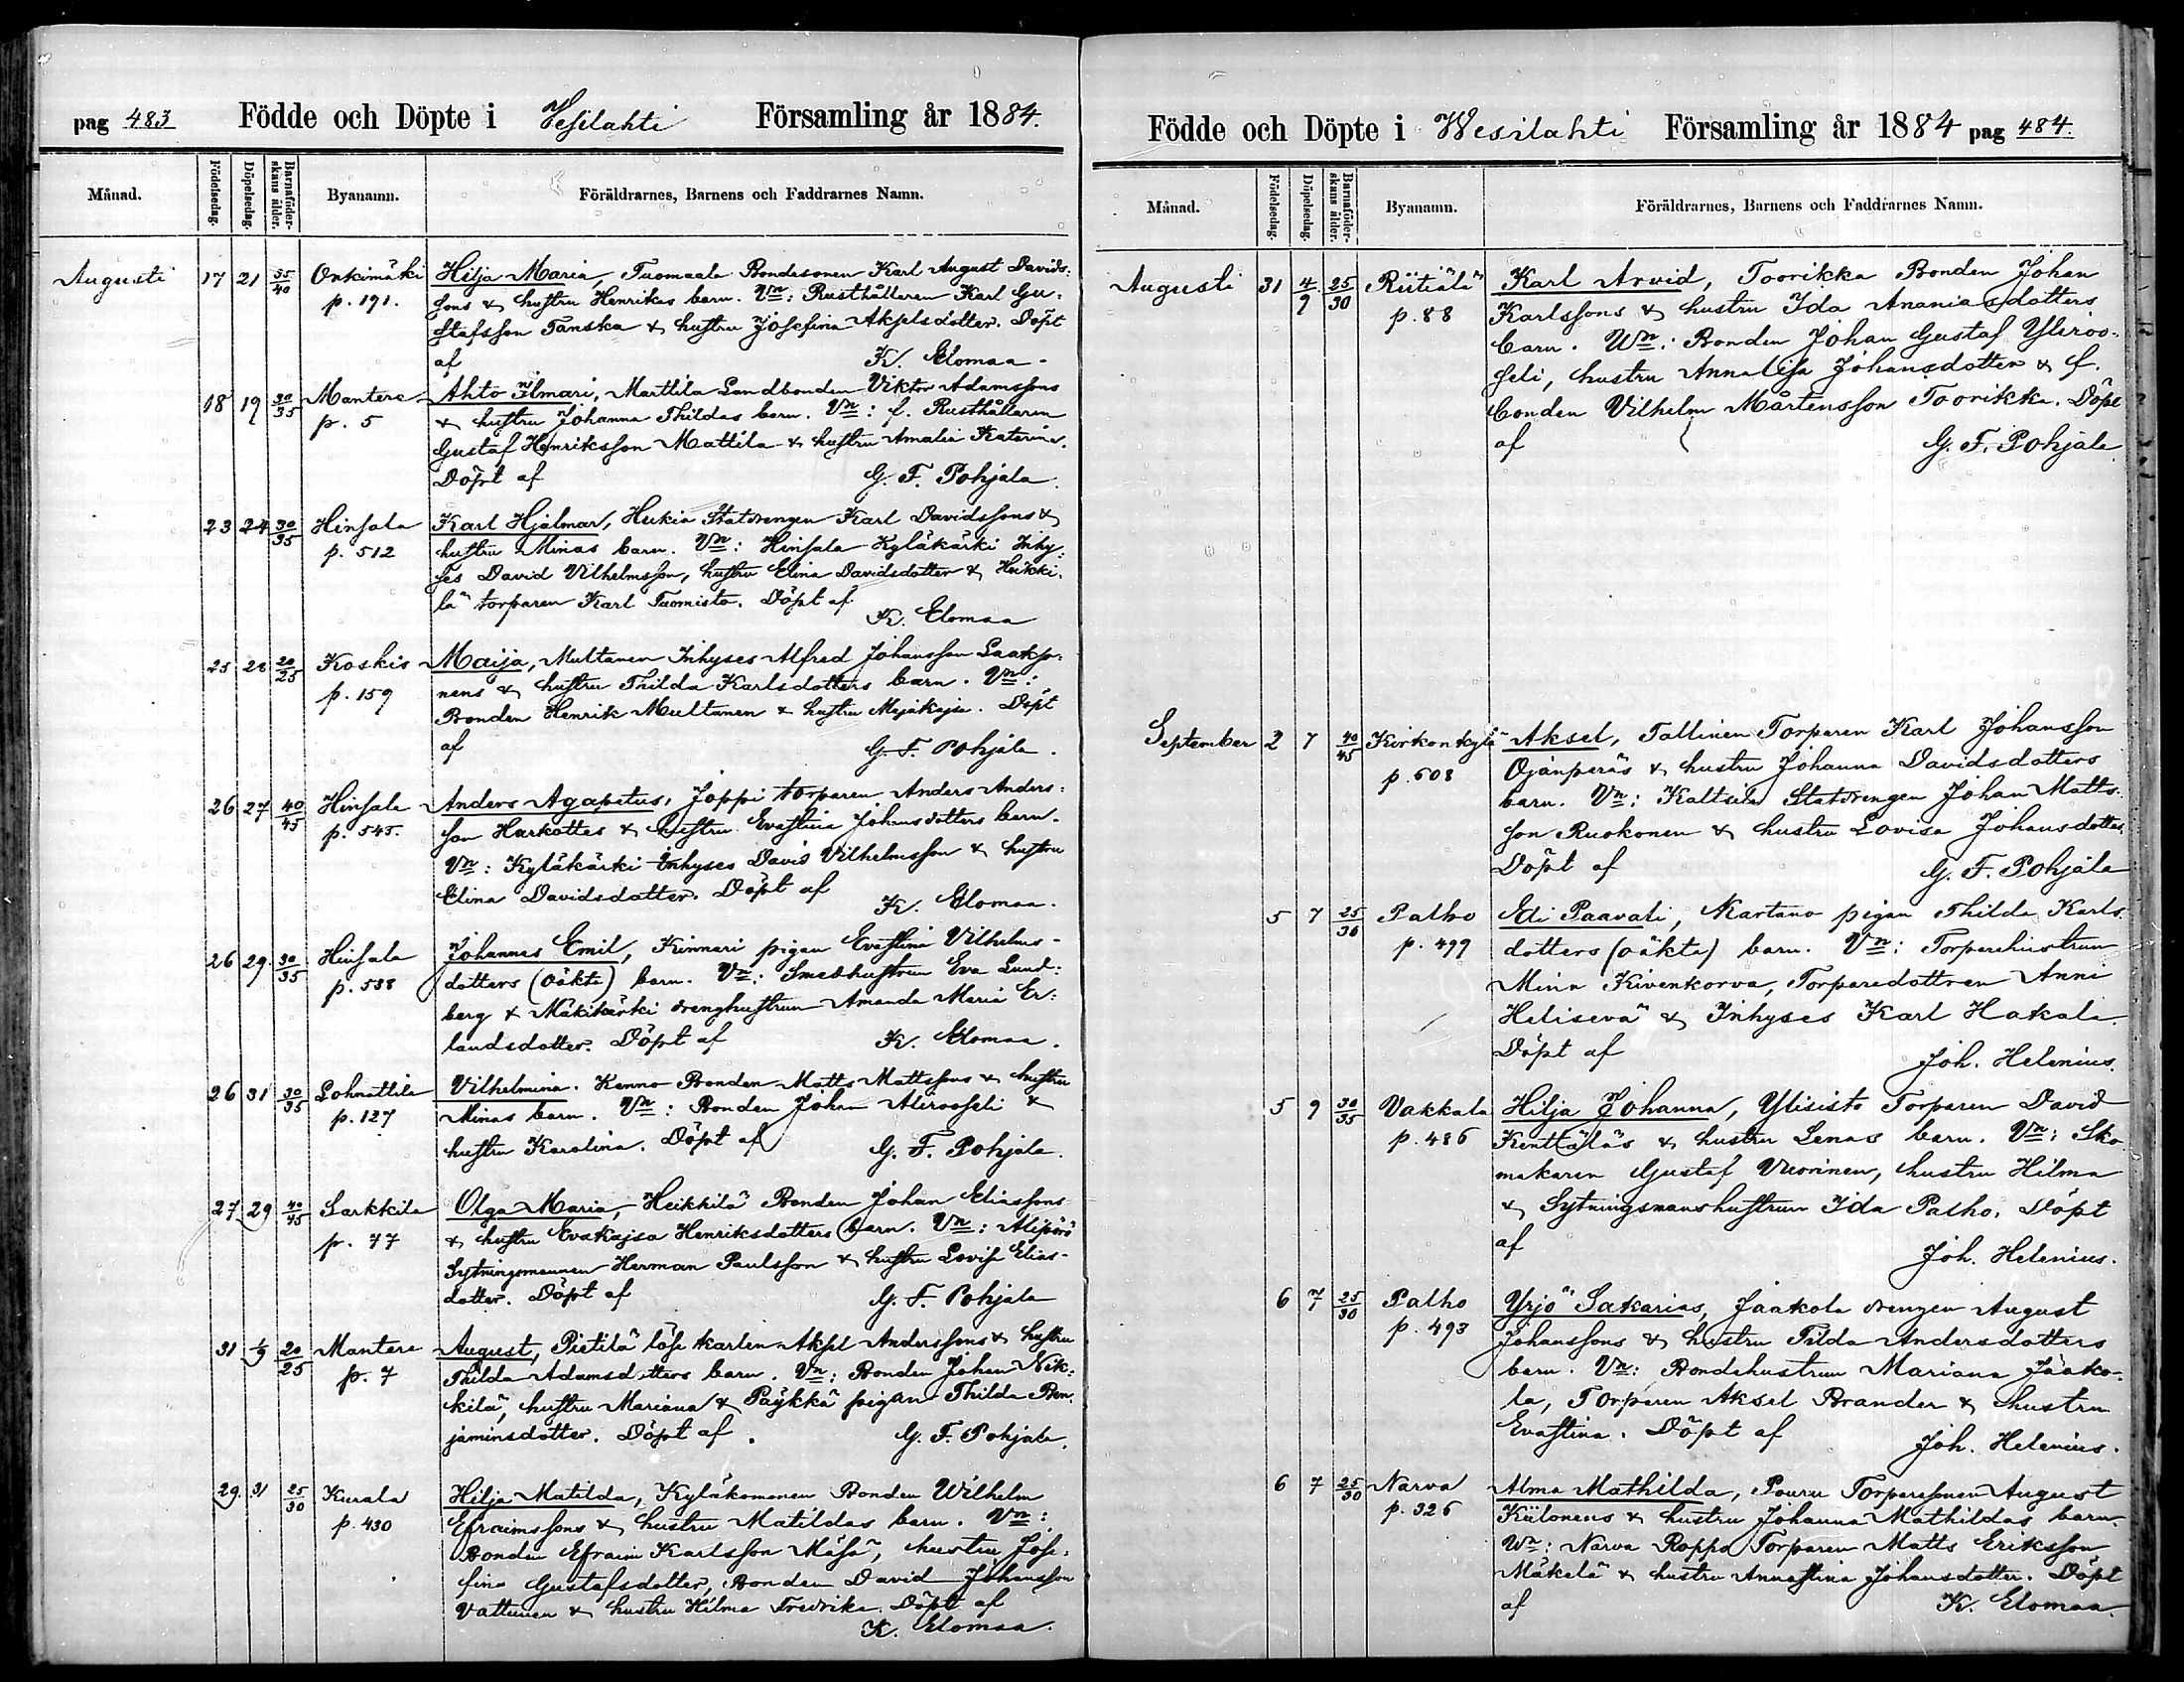 pag 483 Födde och Döpte i Vesilahti Församling år 1884.
Månad. Födelsedag. Döpelsedag. Barnaföderskans ålder. Byanamn. Föräldrarnes, Barnens och Faddrarnes Namn.
Augusti 17 21 35/40 Onkimäki Hilja Maria, Tuomaala Bondesonen Karl August Davids:
p. 191. sons & hustru Henrikas barn. Vn: Rusthållaren Karl Gu:
stafsson Tanska & hustru Josefina Akselsdotter. Döpt
af K. Elomaa.
18 19 30/35 Mantere Ahto Ilmari, Marttila Landbonden Viktor Adamssons
p. 5 & hustru Johanna Thildas barn. Vn: f. Rusthållaren
Gustaf Henriksson Mattila & hustru Amalia Katarina.
Döpt af G. F. Pohjala.
23 24 30/35 Hinsala Karl Hjalmar, Hukia Statdrengen Karl Davidssons &
p. 512 hustru Minas barn. Vn: Hinsala Kyläkärki Inhy:
ses David Vilhelmsson, hustru Elina Davidsdotter & Heikki:
lä torparen Karl Tuomisto. Döpt af
K. Elomaa
25 28 20/25 Koskis Maija, Multanen Inhyses Alfred Johansson Laakso:
p. 159 nens & hustru Thilda Karlsdotters barn. Vn:
Bonden Henrik Multanen & hustru Majakajsa. Döpt
af G. F. Pohjala.
26 27 40/45 Hinsala Anders Agapetus, Joppi torparen Anders Anders:
p. 545. son Harkottas & hustru Evastina Johansdotters barn.
Vn: Kyläkärki Inhyses David Vilhelmsson & hustru
Elina Davidsdotter. Döpt af
K. Elomaa.
26 29. 30/35 Hinsala Johannes Emil, Kinnari pigan Evastina Vilhelms-
p. 538 dotters (oäkta) barn. Vn: Smedhustrun Eva Lund:
berg & Mäkikärki drenghustrun Amanda Maria Er:
landsdotter. Döpt af K. Elomaa.
26 31 30/35 Lohmattila Vilhelmina. Kenno Bonden Matts Mattssons & hustru
p. 127 Minas barn. Vn: Bonden Johan Aliroosseli &
hustru Karolina. Döpt af G. F. Pohjala.
27 29 40/45 Sarkkila Olga Maria, Heikkilä Bonden Johan Eliassons
p. 77 & hustru Evakajsa Henriksdotters barn. Vn:
Sytningsmannen Herman Paulsson & hustru Lovisa Elias-
dotter. Döpt af G. F. Pohjala
31 1/9 20/25 Mantere August, Pietilä löse karlen Aksel Anderssons & hustru
p. 7 Thilda Adamsdotters barn. Vn: Bonden Johan Nik:
kilä, hustru Mariana & Päykkä pigan Thilda Ben:
jaminsdotter. Döpt af G. F. Pohjala.
29. 31 25/30 Kurala Hilja Matilda, Kyläkomonen Bonden Wilhelm
p. 430 Efraimssons & hustru Matildas barn. Vn:
Bonden Efraim Karlsson Mäsä, hustru Jose:
fina Gustafsdotter, Bonden David Johansson
Vattunen & hustru Hilma Fredrika. Döpt af
K. Elomaa.
Födde och Döpte i Wesilahti Församling år 1884 pag 484.
Månad. Födelsedag. Döpelsedag. Barnaföderskans ålder. Byanamn. Föräldrarnes, Barnens och Faddrarnes Namn.
Augusti 31 4/9 25/30 Riitiälä Karl Arvid, Toorikka Bonden Johan
p. 88 Karlssons & hustru Ida Ananiasdotters
barn. Wn: Bonden Johan Gustaf Yliroo-
seli, hustru Annalisa Johansdotter & f.
bonden Vilhelm Mårtensson Toorikka. Döpt
af G. F. Pohjala
September 2 7 40/45 Kirkonkylä Aksel, Tallinen Torparen Karl Johansson
p. 608 Ojanperäs & hustru Johanna Davidsdotters
barn. Vn: Kaltsila Statdrengen Johan Matts-
son Ruokonen & hustru Lovisa Johansdotter.
Döpt af G. F. Pohjala
5 7 25/30 Palho Edi Paavali, Kartano pigan Thilda Karls-
p. 499 dotters (oäkta) barn. Vn: Torparehustrun
Mina Kivenkorva, Torparedottren Anni
Helisevä & Inhyses Karl Hakala.
Döpt af Joh. Helenius.
5 9 30/35 Vakkala Hilja Johanna, Ylisisto Torparen David
p. 486 Kenttäläs & hustru Lenas barn. Vn: Sko
makaren Gustaf Vuorinen, hustru Hilma
& Sytningsmanshustrun Ida Palho. Döpt
af Joh. Helenius.
6 7 25/30 Palho Yrjö Sakarias, Jaakola drengen August
p. 493 Johanssons & hustru Tilda Andersdotters
barn. Vn: Bondehustrun Mariana Jaako-
la, Torparen Aksel Brander & hustru
Evastina. Döpt af Joh. Helenius.
6 7 25/30 Narva Alma Mathilda, Pouru Torparesonen August
p. 326 Kiilonens & hustru Johanna Mathildas barn.
Wn: Narva Roppo Torparen Matts Eriksson
Mäkelä & hustru Annastina Johansdotter. Döpt
af K. Elomaa.